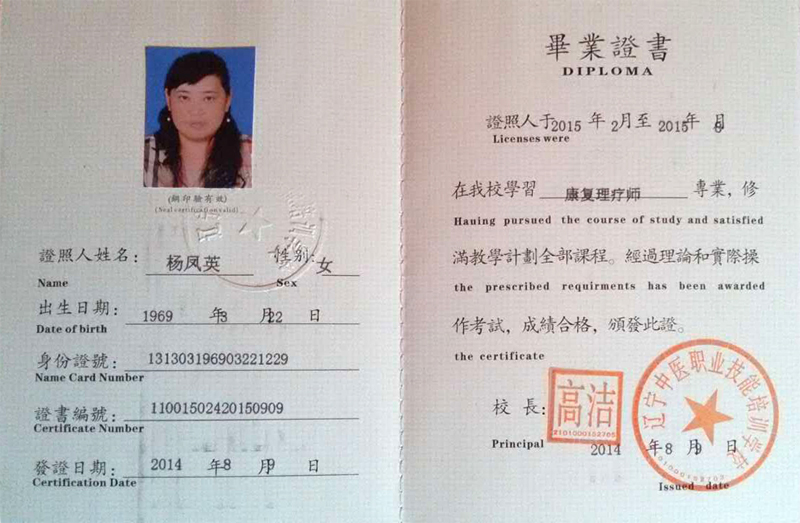 (鋼印驗有效)
(Seal certification valed)
證照人姓名: 杨凤英 性别: 女
Name Sex
出生日期: 1969 年 3 月 22 日
Date of birth
身份證號: 131303196903221229
Name Card Number
證書編號: 11001502420150909
Certificate Number
發證日期: 2014 年 8 月 9 日
Certification Date
畢業證書
DIPLOMA
證照人于2015 年 2月至 2015年 8 月
Licenses were
在我校學習 康复理疗师 專業,修
Hauing pursued the course of study and satisfied
滿教學計劃全部課程。經過理論和實際操
the prescribed requirments has been awarded
作考試,成績合格,頒發此證。
the certificate
校長: 高洁
2101000152705
Principal
辽宁中医职业技能培训学校
2014 年 8 月 9 日
Issued date